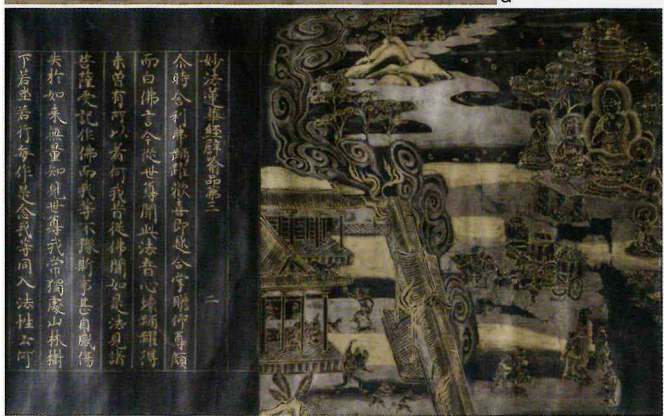 妙法蓮華經譬喻品第三 二
尒時舍利弗踊躍歡喜即起合掌瞻仰尊顏
而白佛言今從世尊聞此法音心懷踊躍得
未曾有所以者何我昔從佛聞如是法見諸
菩薩受記作佛而我等不豫斯事甚自感傷
失於如來無量知見世尊我常獨處山林樹
下若坐若行每作是念我等同入法性云何